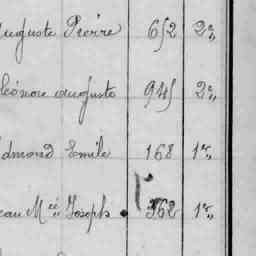 Auguste Pierre 652 2e,,
Léonore Auguste 945 2e,,
Edmond Emile 168 1re,,
eau Mce Joseph. 362 1re,,